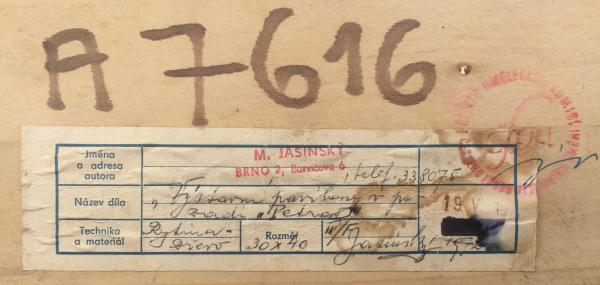 A 7616
Jména a adresa autora
M. JASINSKÝ
BRNO 2, Barvičova 6
, telef. 338075
Název díla
„Výstavní pavilony v po
zadí „Petrov"
19 V
Technika a materiál
Rytina - Dřevo
Rozměr
30x40
Jasinský